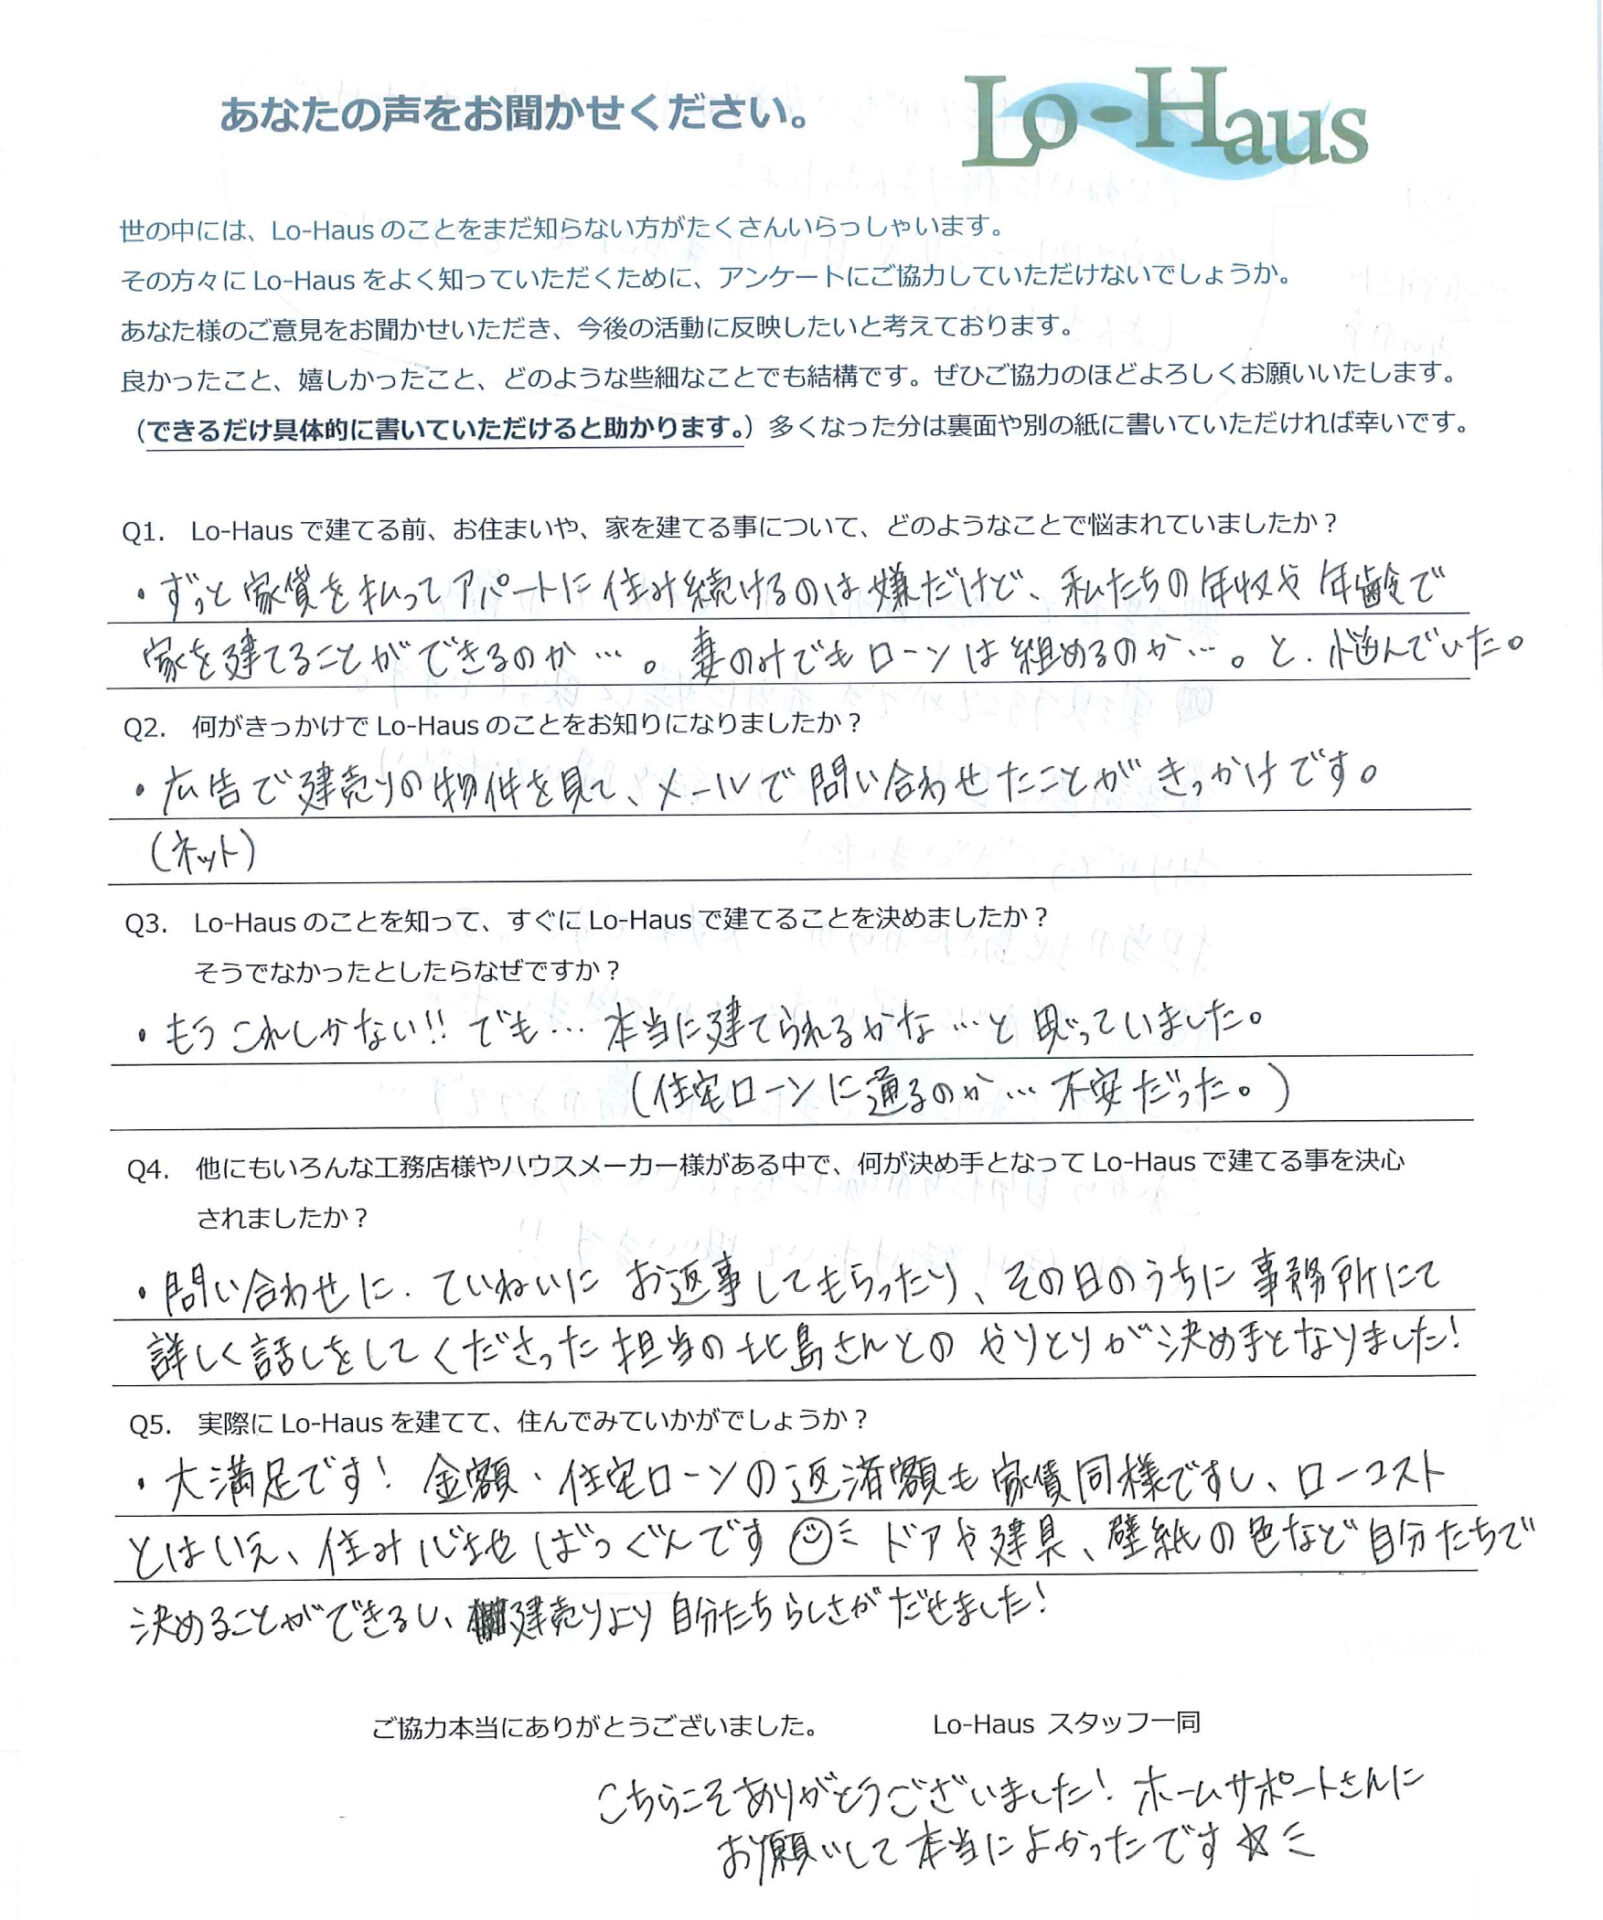 あなたの声をお聞かせください。
Lo-Haus
世の中には、Lo-Hausのことをまだ知らない方がたくさんいらっしゃいます。
その方々にLo-Hausをよく知っていただくために、アンケートにご協力していただけないでしょうか。
あなた様のご意見をお聞かせいただき、今後の活動に反映したいと考えております。
良かったこと、嬉しかったこと、どのような些細なことでも結構です。ぜひご協力のほどよろしくお願いいたします。
（できるだけ具体的に書いていただけると助かります。）多くなった分は裏面や別の紙に書いていただければ幸いです。
Q1. Lo-Hausで建てる前、お住まいや、家を建てる事について、どのようなことで悩まれていましたか？
・ずっと家賃を払ってアパートに住み続けるのは嫌だけど、私たちの年収や年齢で
家を建てることができるのか…。妻のみでもローンは組めるのか…。と、悩んでいた。
Q2. 何がきっかけでLo-Hausのことをお知りになりましたか？
・広告で建売りの物件を見て、メールで問い合わせたことがきっかけです。
（ネット）
Q3. Lo-Hausのことを知って、すぐにLo-Hausで建てることを決めましたか？
そうでなかったとしたらなぜですか？
・もうこれしかない!! でも… 本当に建てられるかな…と思っていました。
（住宅ローンに通るのか… 不安だった。）
Q4. 他にもいろんな工務店様やハウスメーカー様がある中で、何が決め手となってLo-Hausで建てる事を決心
されましたか？
・問い合わせに、ていねいにお返事してもらったり、その日のうちに事務所にて
詳しく話しをしてくださった担当の北島さんとのやりとりが決め手となりました!
Q5. 実際にLo-Hausを建てて、住んでみていかがでしょうか？
・大満足です! 金額・住宅ローンの返済額も家賃同様ですし、ローコスト
とはいえ、住み心地ばつぐんです ドアや建具、壁紙の色など自分たちで
決めることができるし、建売りより自分たちらしさがだせました!
ご協力本当にありがとうございました。 Lo-Haus スタッフ一同
こちらこそありがとうございました! ホームサポートさんに
お願いして本当によかったです☆